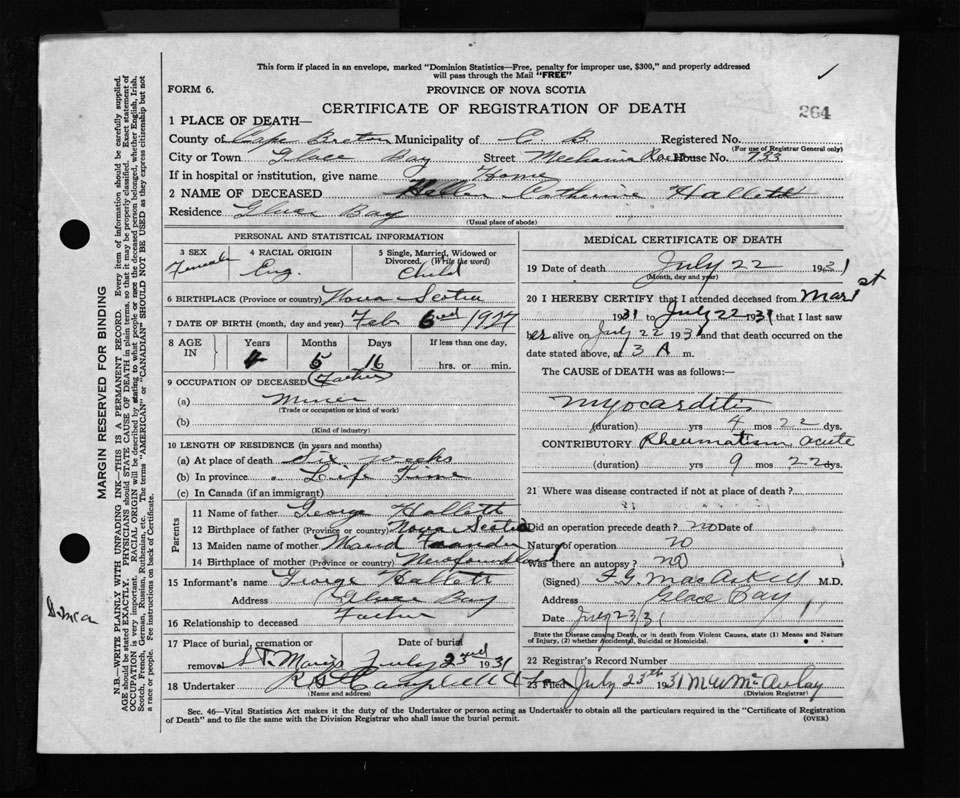 This form if placed in an envelope, marked "Dominion Statistics—Free, penalty for improper use, $300," and properly addressed
will pass through the Mail "FREE"
FORM 6.
PROVINCE OF NOVA SCOTIA
264
CERTIFICATE OF REGISTRATION OF DEATH
1 PLACE OF DEATH—
County of Cape Breton Municipality of C B Registered No.
(For use of Registrar General only)
City or Town Glace Bay Street Mechanic House No. 733
If in hospital or institution, give name Home
2 NAME OF DECEASED Catherine Hallett
Residence Glace Bay
(Usual place of abode)
PERSONAL AND STATISTICAL INFORMATION
3 SEX Female
4 RACIAL ORIGIN Eng.
5 Single, Married, Widowed or Divorced. (Write the word) Child
6 BIRTHPLACE (Province or country) Nova Scotia
7 DATE OF BIRTH (month, day and year) Feb 1927
8 AGE IN Years 4 Months 5 Days 16 If less than one day, hrs. or min.
9 OCCUPATION OF DECEASED (Father)
(a) Miner
(Trade or occupation or kind of work)
(b)
(Kind of industry)
10 LENGTH OF RESIDENCE (in years and months)
(a) At place of death Six weeks
(b) In province Life Time
(c) In Canada (if an immigrant)
Parents
11 Name of father George Hallett
12 Birthplace of father (Province or country) Nova Scotia
13 Maiden name of mother Maud
14 Birthplace of mother (Province or country) Newfoundland
15 Informant's name George Hallett
Address Glace Bay
16 Relationship to deceased Father
17 Place of burial, cremation or removal St. Marys Date of burial July 23rd 1931
18 Undertaker Campbell
(Name and address)
MEDICAL CERTIFICATE OF DEATH
19 Date of death July 22 1931
(Month, day and year)
20 I HEREBY CERTIFY that I attended deceased from Mar 1st
1931 to July 22 1931 that I last saw
her alive on July 22 1931 and that death occurred on the
date stated above, at 3 A m.
The CAUSE OF DEATH was as follows:—
Myocarditis
(duration) yrs 4 mos 22 dys.
CONTRIBUTORY Rheumatism acute
(duration) yrs 9 mos 22 dys.
21 Where was disease contracted if not at place of death?
Did an operation precede death? no Date of
Nature of operation no
Was there an autopsy? no
(Signed) MacAskill M.D.
Address Glace Bay
Date July 23/31
State the Disease causing Death, or in death from Violent Causes, state (1) Means and Nature
of Injury, (2) whether Accidental, Suicidal or Homicidal.
22 Registrar's Record Number
23 Filed July 23th 1931 McAulay
(Division Registrar)
Sec. 46—Vital Statistics Act makes it the duty of the Undertaker or person acting as Undertaker to obtain all the particulars required in the "Certificate of Registration
of Death" and to file the same with the Division Registrar who shall issue the burial permit.
(OVER)
MARGIN RESERVED FOR BINDING
N.B.—WRITE PLAINLY, WITH UNFADING INK—THIS IS A PERMANENT RECORD. Every item of information should be carefully supplied.
AGE should be stated EXACTLY. PHYSICIANS should STATE CAUSE OF DEATH in plain terms, so that it may be properly classified. Exact statement of
OCCUPATION is very important. RACIAL ORIGIN will be described by stating to what people or race the deceased person belonged, whether English, Irish,
Scotch, French, German, Russian, Ruthenian, etc. The terms "AMERICAN" or "CANADIAN" SHOULD NOT BE USED as they express citizenship but not
a race or people. Fee instructions on back of Certificate.